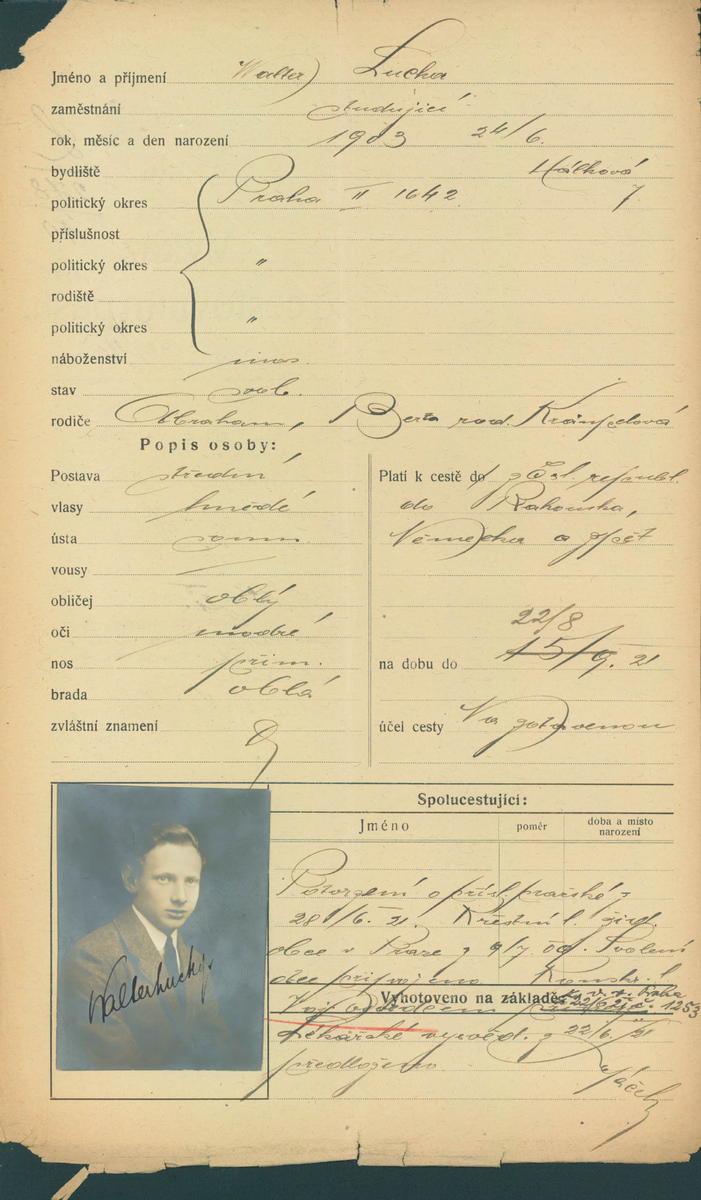 Jméno a příjmení Walter Lucka
zaměstnání studující
rok, měsíc a den narození 1903 24/6.
bydliště Hálková
politický okres Praha II 1642. 7
příslušnost
politický okres "
rodiště
politický okres "
náboženství
stav svob.
rodiče Abraham, Berta rod.
Popis osoby:
Postava střední
vlasy hnědé
ústa
vousy
obličej oblý
oči modré
nos přim.
brada oblá
zvláštní znamení
Platí k cestě do z Čsl. republ.
do Rakouska,
Německa a zpět
22/8
na dobu do 15/9. 21
účel cesty Na zotavenou
Spolucestující:
Jméno poměr doba a místo narození
Potvrzení o přísl. pražské z
28/6. 21. Křestní l. žid.
obce v Praze z 9/7 08. Svolení
otce připojeno
Vyhotoveno na základě: 1253
Lékařské vysvěd. z 22/6. 21
předloženo
Walter Lucky.